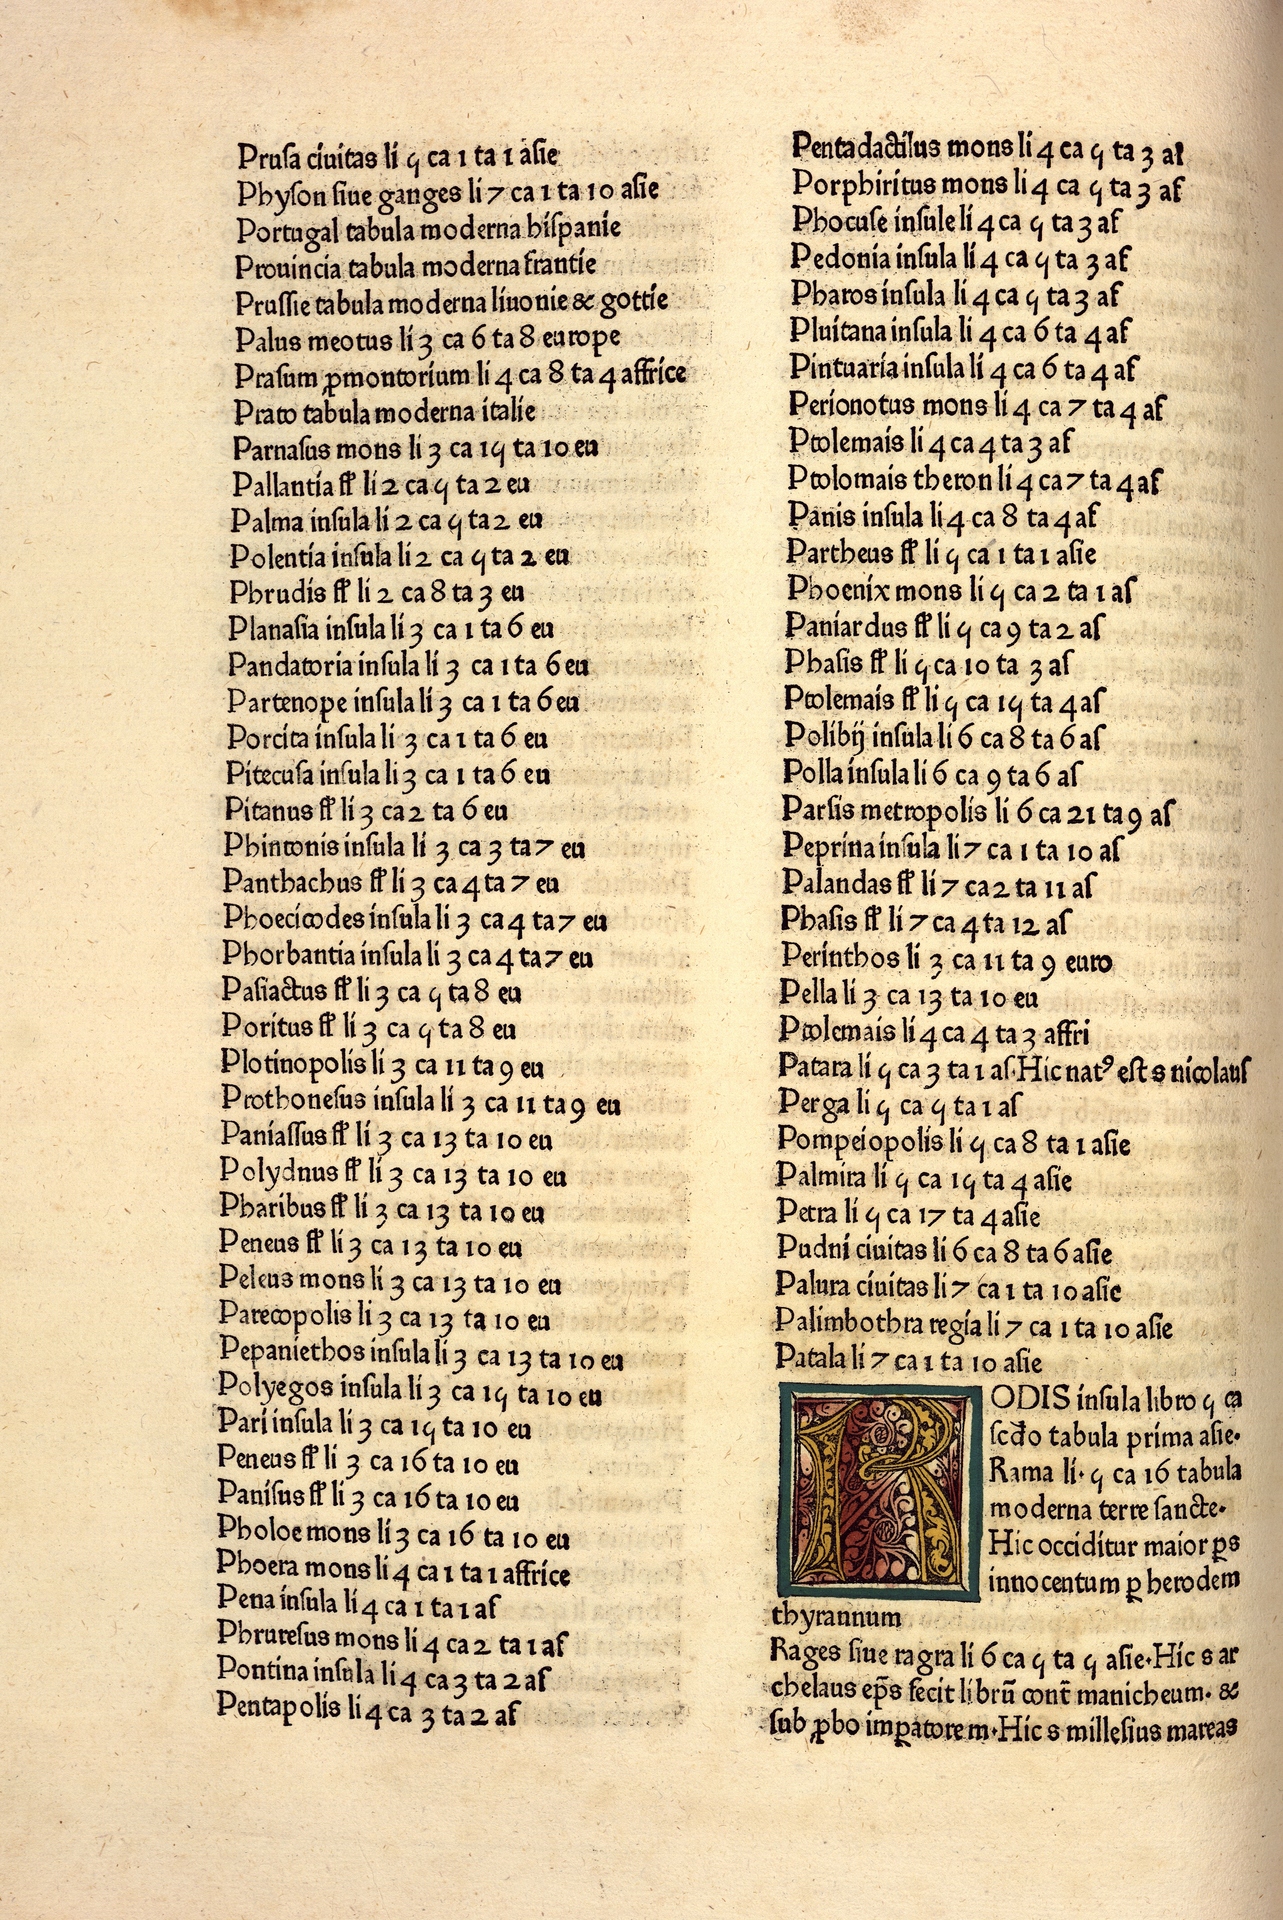 Prusa ciuitas li 5 ca 1 ta 1 asie
Physon siue ganges li 7 ca 1 ta 10 asie
Portugal tabula moderna hispanie
Prouincia tabula moderna frantie
Prussie tabula moderna liuonie & gottie
Palus meotus li 3 ca 6 ta 8 europe
Prasum ꝓmontorium li 4 ca 8 ta 4 affrice
Prato tabula moderna italie
Parnasus mons li 3 ca 15 ta 10 eu
Pallantia fł li 2 ca 5 ta 2 eu
Palma insula li 2 ca 5 ta 2 eu
Polentia insula li 2 ca 5 ta 2 eu
Phrudis fł li 2 ca 8 ta 3 eu
Planasia insula li 3 ca 1 ta 6 eu
Pandatoria insula li 3 ca 1 ta 6 eu
Partenope insula li 3 ca 1 ta 6 eu
Porcita insula li 3 ca 1 ta 6 eu
Pitecusa insula li 3 ca 1 ta 6 eu
Pitanus fł li 3 ca 2 ta 6 eu
Phintonis insula li 3 ca 3 ta 7 eu
Panthachus fł li 3 ca 4 ta 7 eu
Phoecitodes insula li 3 ca 4 ta 7 eu
Phorbantia insula li 3 ca 4 ta 7 eu
Pasiactus fł li 3 ca 5 ta 8 eu
Poritus fł li 3 ca 5 ta 8 eu
Plotinopolis li 3 ca 11 ta 9 eu
Prothonesus insula li 3 ca 11 ta 9 eu
Paniassus fł li 3 ca 13 ta 10 eu
Polydnus fł li 3 ca 13 ta 10 eu
Pharibus fł li 3 ca 13 ta 10 eu
Peneus fł li 3 ca 13 ta 10 eu
Peleus mons li 3 ca 13 ta 10 eu
Patecopolis li 3 ca 13 ta 10 eu
Pepaniethos insula li 3 ca 13 ta 10 eu
Polyegos insula li 3 ca 15 ta 10 eu
Pari insula li 3 ca 15 ta 10 eu
Peneus fł li 3 ca 16 ta 10 eu
Panisus fł li 3 ca 16 ta 10 eu
Pholoe mons li 3 ca 16 ta 10 eu
Phoera mons li 4 ca 1 ta 1 affrice
Pena insula li 4 ca 1 ta 1 af
Phruresus mons li 4 ca 2 ta 1 af
Pontina insula li 4 ca 3 ta 2 af
Pentapolis li 4 ca 3 ta 2 af
Pentadactilus mons li 4 ca 5 ta 3 af
Porphiritus mons li 4 ca 5 ta 3 af
Phocuse insule li 4 ca 5 ta 3 af
Pedonia insula li 4 ca 5 ta 3 af
Pharos insula li 4 ca 5 ta 3 af
Pluitana insula li 4 ca 6 ta 4 af
Pintuaria insula li 4 ca 6 ta 4 af
Perionotus mons li 4 ca 7 ta 4 af
Ptolemais li 4 ca 4 ta 3 af
Ptolomais theron li 4 ca 7 ta 4 af
Panis insula li 4 ca 8 ta 4 af
Partheus fł li 5 ca 1 ta 1 asie
Phoenix mons li 5 ca 2 ta 1 as
Paniardus fł li 5 ca 9 ta 2 as
Phasis fł li 5 ca 10 ta 3 as
Ptolemais fł li 5 ca 15 ta 4 as
Polibij insula li 6 ca 8 ta 6 as
Polla insula li 6 ca 9 ta 6 as
Parsis metropolis li 6 ca 21 ta 9 as
Peprina insula li 7 ca 1 ta 10 as
Palandas fł li 7 ca 2 ta 11 as
Phasis fł li 7 ca 4 ta 12 as
Perinthos li 3 ca 11 ta 9 euro
Pella li 3 ca 13 ta 10 eu
Ptolemais li 4 ca 4 ta 3 affri
Patara li 5 ca 3 ta 1 as. Hic natꝰ est s nicolaus
Perga li 5 ca 5 ta 1 as
Pompeiopolis li 5 ca 8 ta 1 asie
Palmira li 5 ca 15 ta 4 asie
Petra li 5 ca 17 ta 4 asie
Pudni ciuitas li 6 ca 8 ta 6 asie
Palura ciuitas li 7 ca 1 ta 10 asie
Palimbothra regia li 7 ca 1 ta 10 asie
Patala li 7 ca 1 ta 10 asie
RODIS insula libro 5 ca
scd̄o tabula prima asie.
Rama li. 5 ca 16 tabula
moderna terre sancte.
Hic occiditur maior ꝑs
innocentum ꝑ herodem
thyrannum
Rages siue ragra li 6 ca 5 ta 5 asie. Hic s ar
chelaus ep̄s fecit librū cont̄ manicheum. &
sub ꝓbo imꝑatorem. Hic s millesius mareas